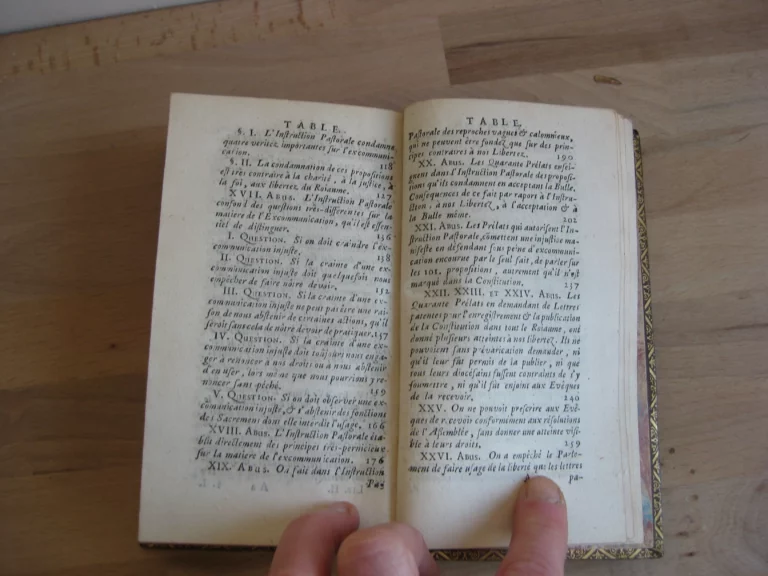 TABLE.
§. I. L'Instruction Pastorale condamne
quatre veritez importantes sur l'excommuni-
cation. 118
§. II. La condamnation de ces propositions
est très contraire à la charité, à la justice, à
la foi, aux libertez du Roiaume. 127
XVII. ABUS. L'Instruction Pastorale
confond des questions très-différentes sur la
matiere de l'Excommunication, qu'il est essen-
tiel de distinguer. 136
I. QUESTION. Si on doit craindre l'ex-
communication injuste. 138
II. QUESTION. Si la crainte d'une ex-
communication injuste doit quelquefois nous
empêcher de faire nôtre devoir. 152
III. QUESTION. Si la crainte d'une ex-
communication injuste ne peut pas être une rai-
son de nous abstenir de certaines actions, qu'il
seroit sans cela de nôtre devoir de pratiquer. 157
IV. QUESTION. Si la crainte d'une ex-
communication injuste doit toûjours nous enga-
ger à renoncer à nos droits ou à nous abstenir
d'en user, lors même que nous pourrions y re-
noncer sans péché. 159
V. QUESTION. Si on doit observer une ex-
communication injuste, & s'abstenir des fonctions
des Sacremens dont elle interdit l'usage. 166
XVIII. ABUS. L'Instruction Pastorale éta-
blit directement des principes très-pernicieux
sur la matiere de l'excommunication. 176
XIX. ABUS. On fait dans l'Instruction
Pas-
TABLE.
Pastorale des reproches vagues & calomnieux,
qui ne peuvent être fondez que sur des prin-
cipes contraires à nos Libertez. 190
XX. ABUS. Les Quarante Prélats ensei-
gnent dans l'Instruction Pastorale des proposi-
tions qu'ils condamnent en acceptant la Bulle.
Conséquences de ce fait par raport à l'Instru-
ction, à nos Libertez, à l'acceptation & à
la Bulle même. 202
XXI. ABUS. Les Prélats qui autorisent l'In-
struction Pastorale, cõmettent une injustice ma-
nifeste en défendant sous peine d'excommuni-
cation encourue par le seul fait, de parler sur
les 101. propositions, autrement qu'il n'est
marqué dans la Constitution. 237
XXII. XXIII. ET XXIV. ABUS. Les
Quarante Prélats en demandant des Lettres
patentes pour l'enregistrement & la publication
de la Constitution dans tout le Roiaume, ont
donné plusieurs atteintes à nos libertez. Ils ne
pouvoient sans prévarication demander, ni
qu'il leur fût permis de la publier, ni que
tous leurs diocésains fussent contraints de s'y
soûmettre, ni qu'il fût enjoint aux Evêques
de la recevoir. 240
XXV. On ne pouvoit prescrire aux Evê-
ques de recevoir conformement aux résolutions
de l'Assemblée, sans donner une atteinte visi-
ble à leurs droits. 259
XXVI. ABUS. On a empêché le Parle-
ment de faire usage de la liberté que les lettres
pa-